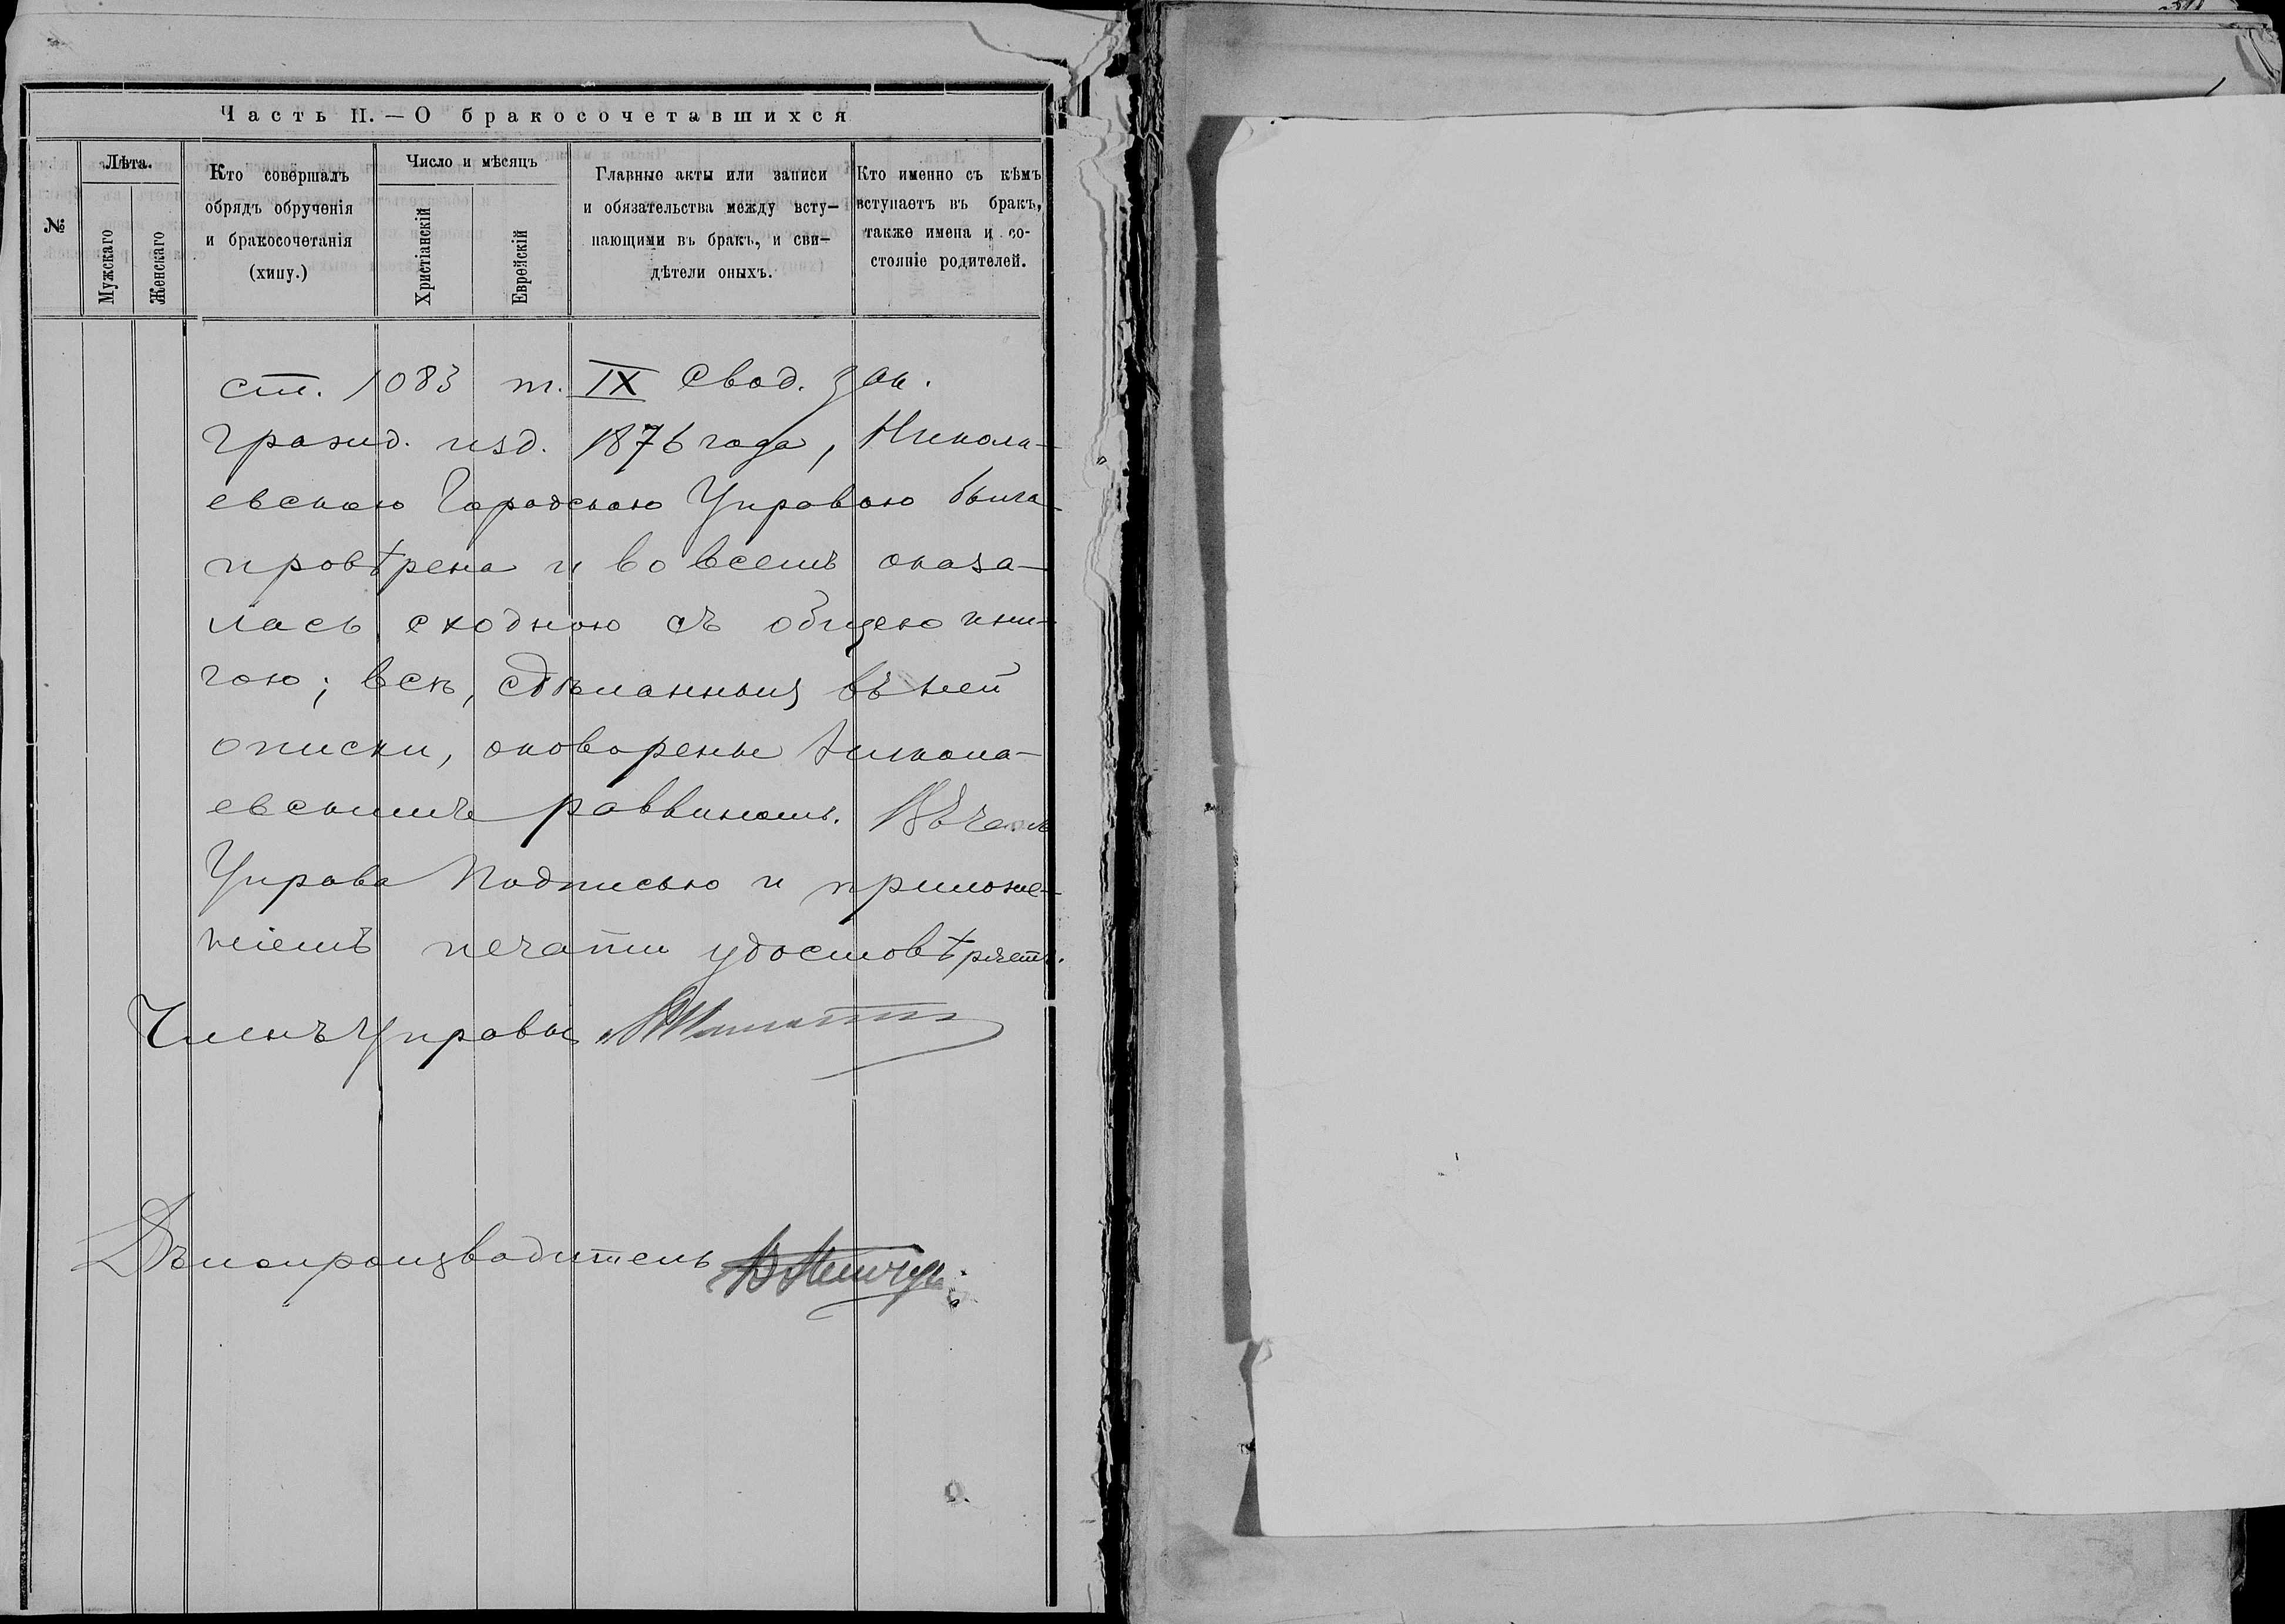 Часть II. — О бракосочетавшихся
№
Лѣта.
Мужскаго
Женскаго
Кто совершалъ
обрядъ обрученія
и бракосочетанія
(хипу.)
Число и мѣсяцъ
Христіанскій
Еврейскій
Главные акты или записи
и обязательства между всту—
пающими въ бракъ, и сви—
дѣтели оныхъ.
Кто именно съ кѣмъ
вступаетъ въ бракъ,
также имена и со-
стояніе родителей.
ст. 1083 т. IX Свод. Зак.
гражд. изд. 1876 года, Никола-
евскою Городскою Управою была
провѣрена и во всемъ оказа-
лась сходною съ общею кни-
гою; всѣ, сдѣланныя въ ней
описки, оговорены Никола-
евскимъ раввиномъ. Въ чемъ
Управа подписью и приложе-
ніемъ печати удостовѣряетъ.
Членъ Управы
Дѣлопроизводитель